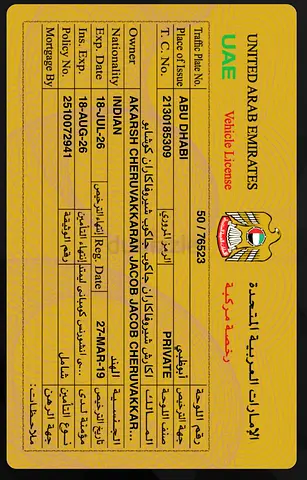 UNITED ARAB EMIRATES الإمارات العربية المتحدة
UAE Vehicle License رخصة مركبة
Traffic Plate No. 50 / 76523 رقم اللوحة
Place of Issue ABU DHABI أبوظبي جهة الترخيص
T. C. No. 2130185309 الرمز المروري PRIVATE صنف اللوحة
Owner اكارش شيروفاكاران جاكوب جاكوب شيروفاكاران كوشابو المالك
AKARSH CHERUVAKKARAN JACOB JACOB CHERUVAKKAR...
Nationality INDIAN الهند الجنسية
Exp. Date 18-JUL-26 إنتهاء الترخيص Reg. Date 27-MAR-19 تاريخ الترخيص
Ins. Exp. 18-AUG-26 إنتهاء التأمين مؤمنة لدى
Policy No. 2510072941 رقم الوثيقة شامل نوع التأمين
Mortgage By جهة الرهن
ملاحظات: